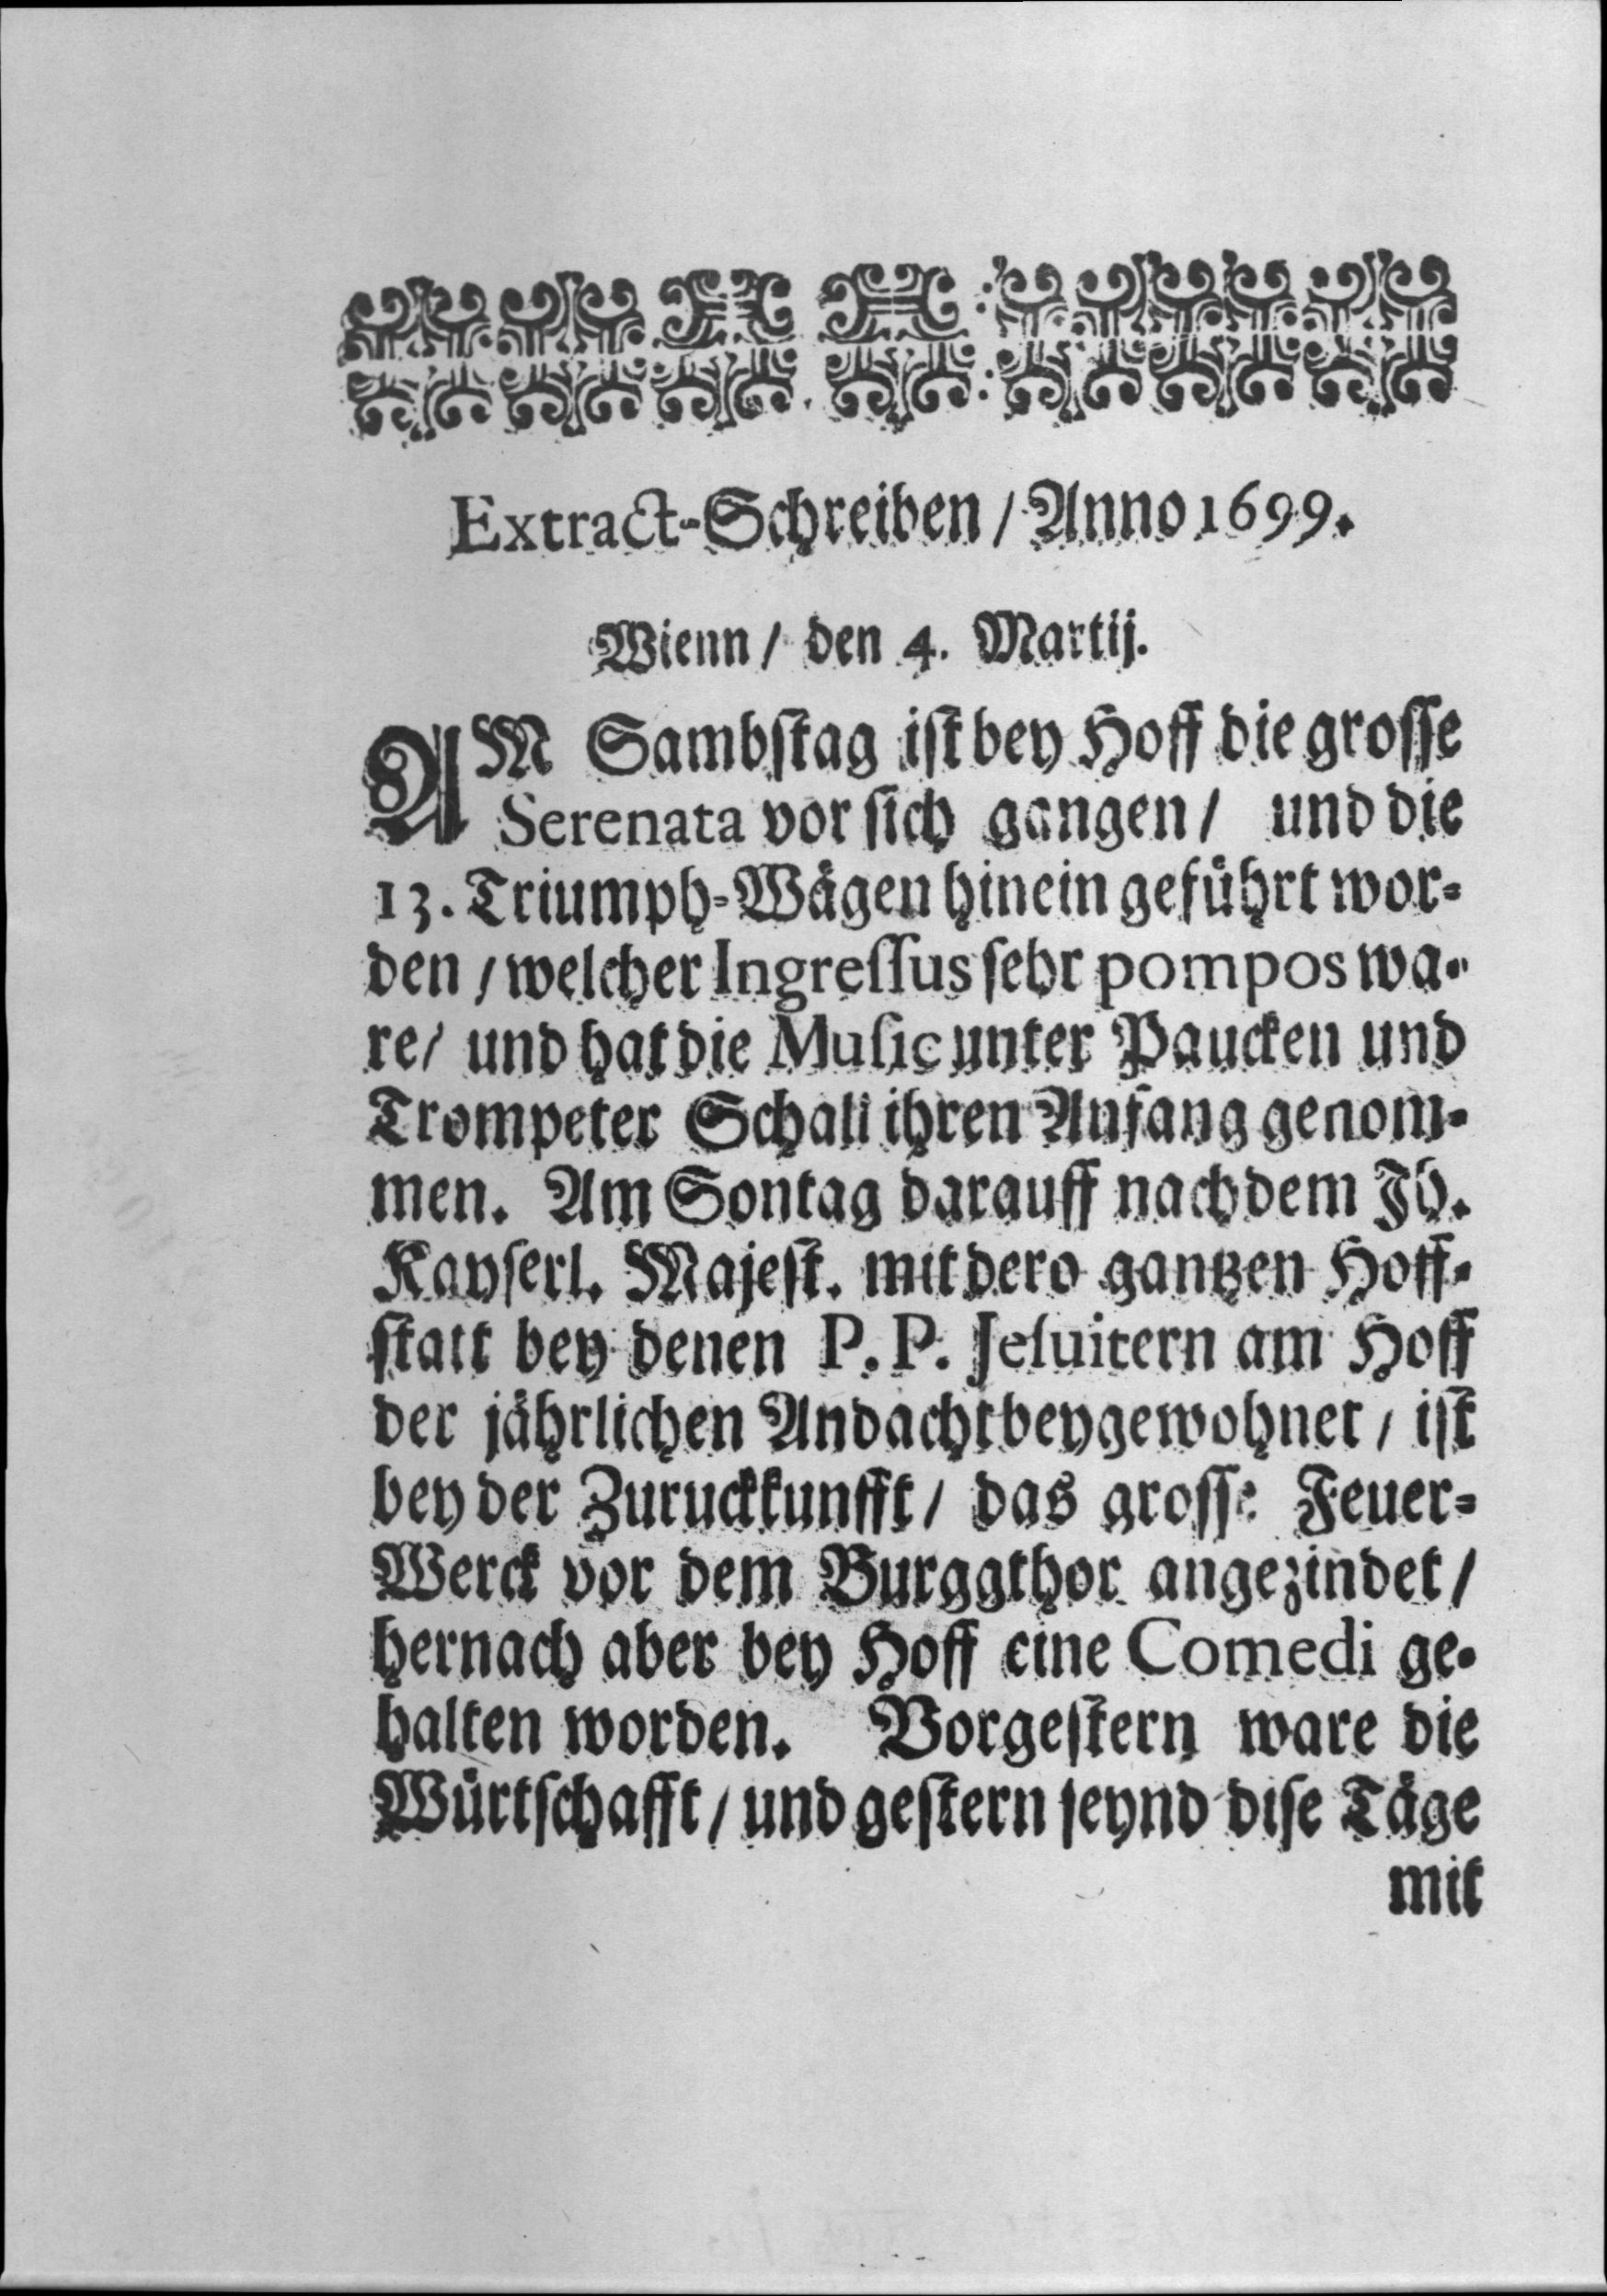 Extract-Schreiben / Anno 1699.
Wienn / den 4. Martij.
AM Sambstag ist bey Hoff die grosse
Serenata vor sich gangen / und die
13. Triumph-Wägen hinein geführt wor-
den / welcher Ingressus sehr pompos wa-
re / und hat die Music unter Paucken und
Trompeter Schall ihren Anfang genom-
men. Am Sontag darauff nachdem Jh.
Kayserl. Majest. mit dero gantzen Hoff-
statt bey denen P. P. Jesuitern am Hoff
der jährlichen Andacht beygewohnet / ist
bey der Zuruckkunfft / das grosse Feuer-
Werck vor dem Burggthor angezindet /
hernach aber bey Hoff eine Comedi ge-
halten worden. Vorgestern ware die
Würtschafft / und gestern seynd dise Täge
mit